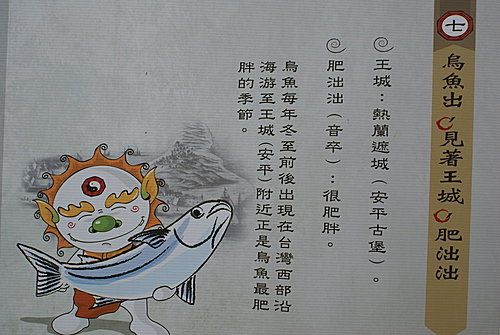 七
烏魚出 見著王城 肥泏泏
王城：熱蘭遮城（安平古堡）。
肥泏泏（音卒）：很肥胖。
烏魚每年冬至前後出現在台灣西部沿
海游至王城（安平）附近正是烏魚最肥
胖的季節。